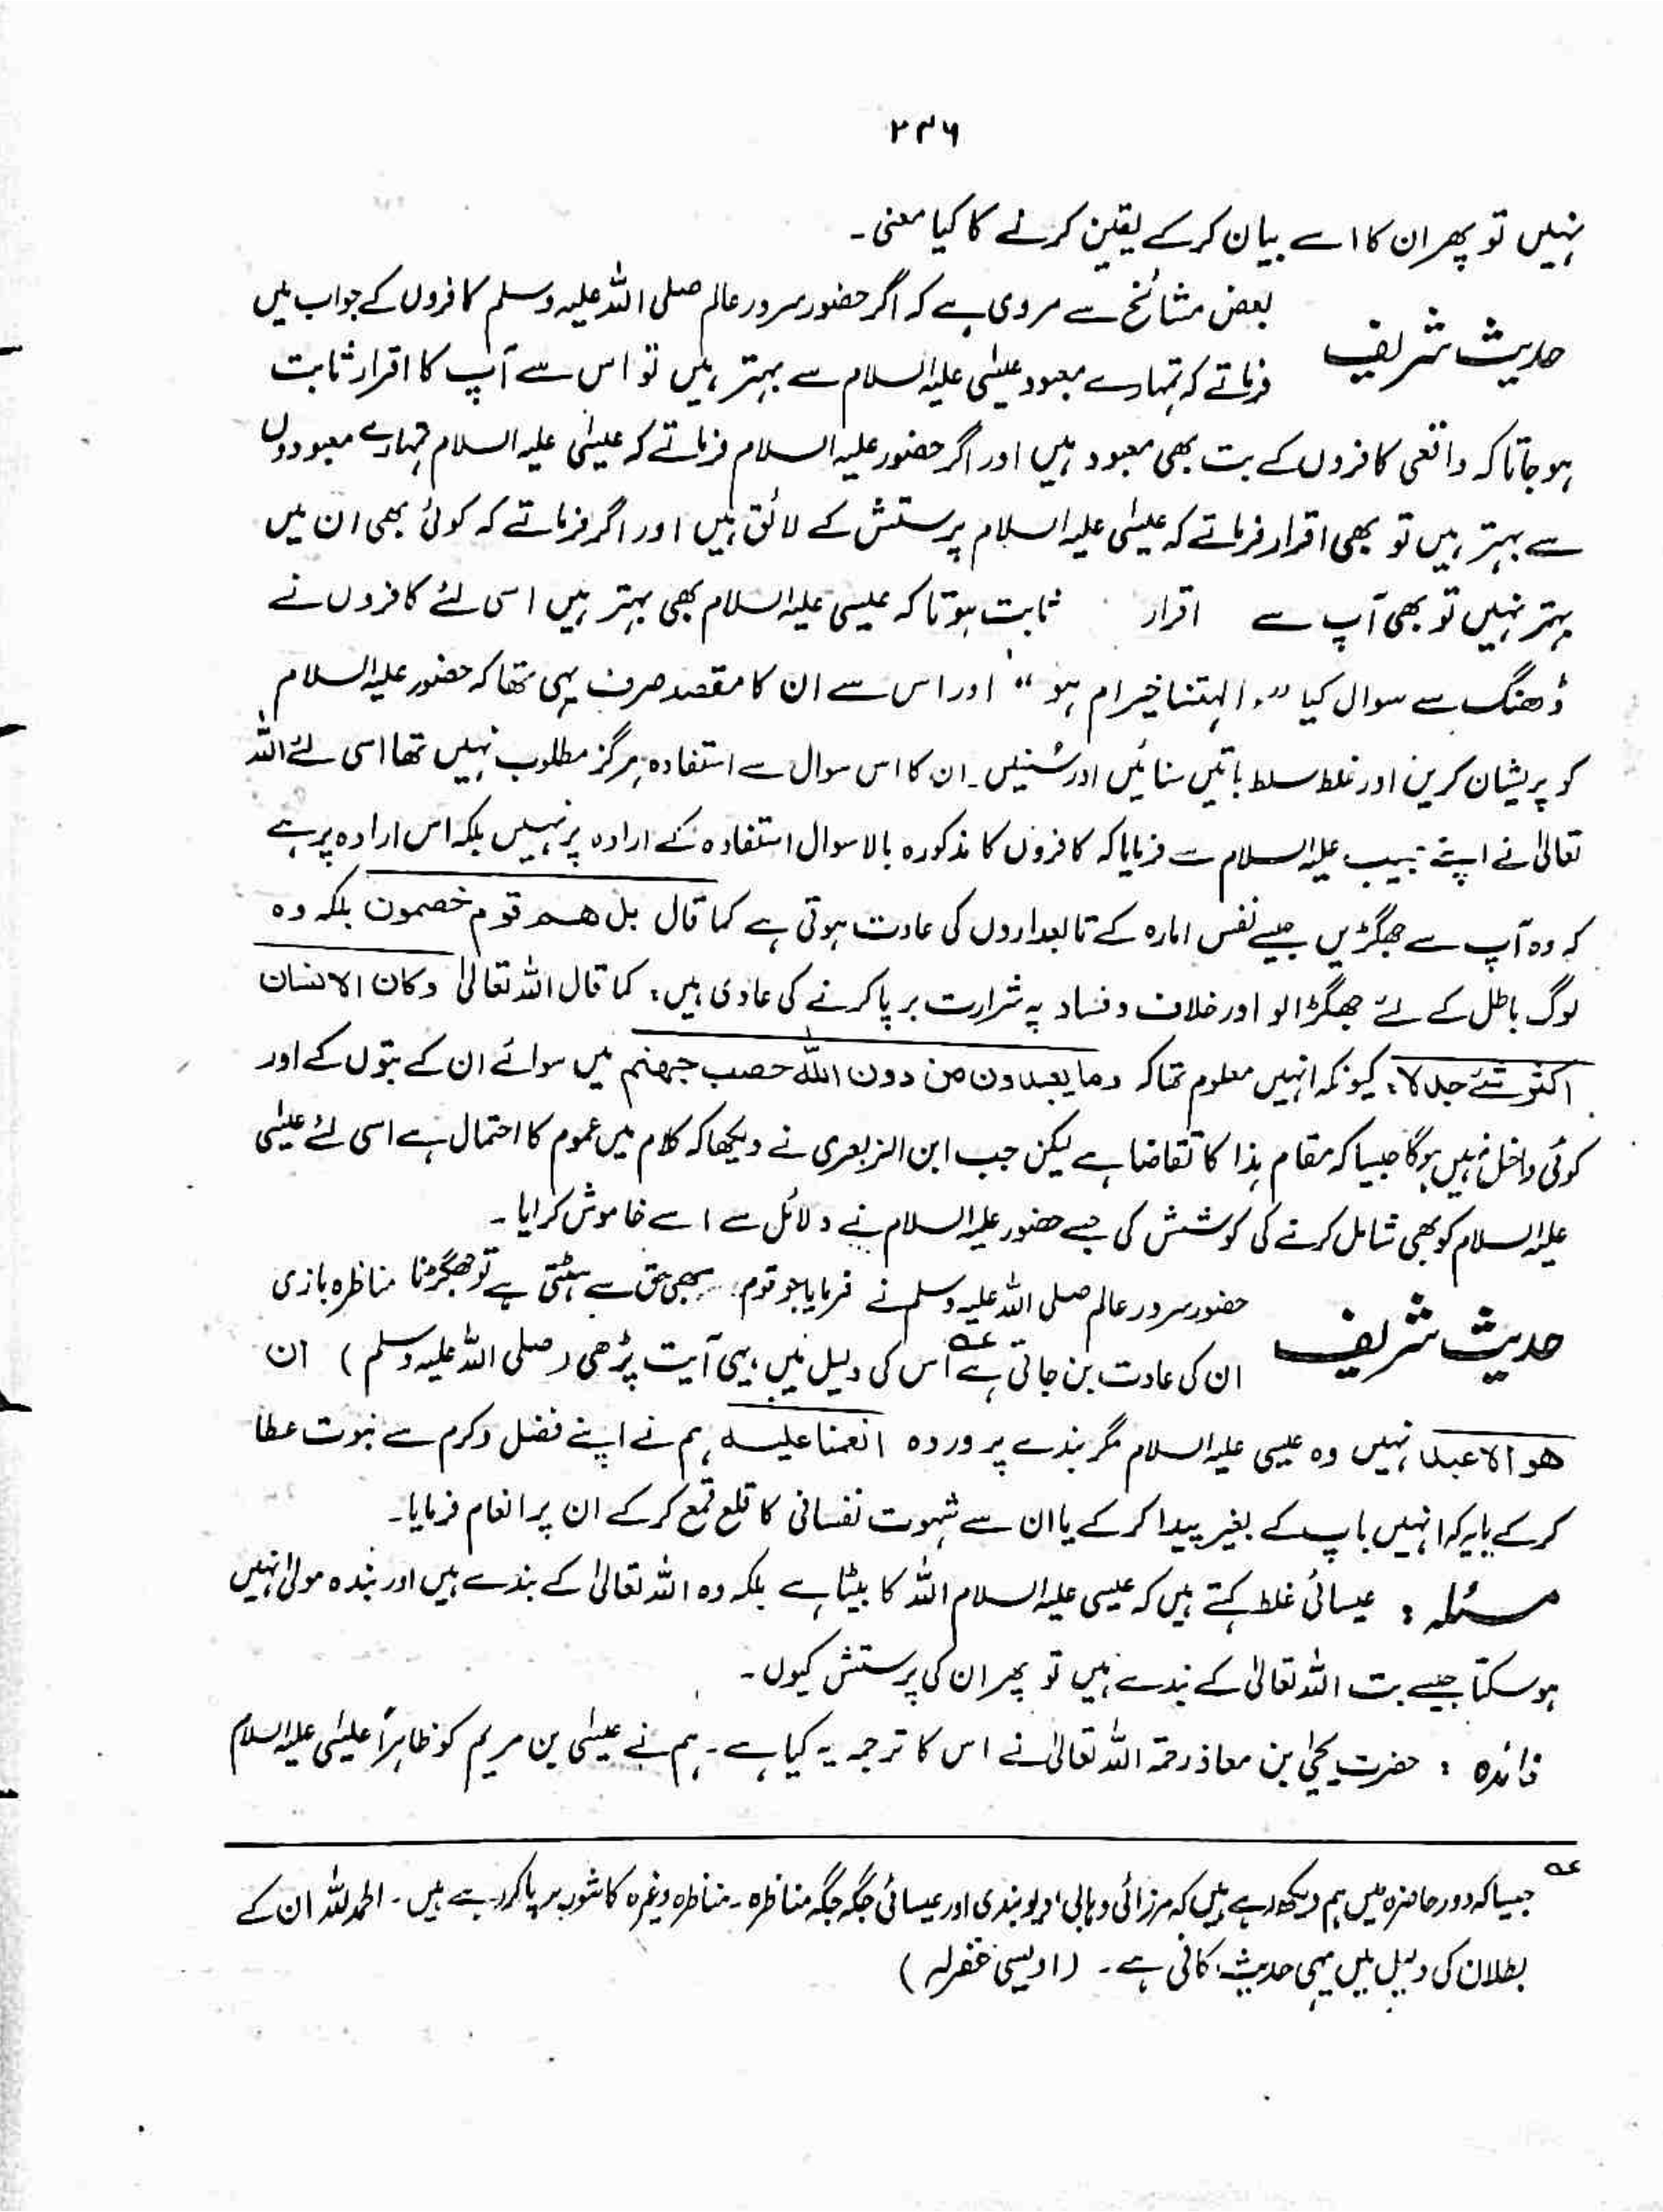 ۲۳۶
نہیں تو پھر ان کا اسے بیان کرکے یقین کرنے کا کیا معنی۔
بعض مشائخ سے مروی ہے کہ اگر حضور سرور عالم صلی اللہ علیہ وسلم کافروں کے جواب میں
حدیث شریف
فرماتے کہ تمہارے معبود عیسٰی علیہ السلام سے بہتر ہیں تو اس سے آپ کا اقرار ثابت
ہو جاتا کہ واقعی کافروں کے بت بھی معبود ہیں اور اگر حضور علیہ السلام فرماتے کہ عیسٰی علیہ السلام تمہارے معبودوں
سے بہتر ہیں تو بھی اقرار فرماتے کہ عیسٰی علیہ السلام پرستش کے لائق ہیں اور اگر فرماتے کہ کوئی بھی ان میں
بہتر نہیں تو بھی آپ سے اقرار ثابت ہوتا کہ عیسی علیہ السلام بھی بہتر ہیں اسی لئے کافروں نے
ڈھنگ سے سوال کیا ”ء الہتنا خیر ام ہو“ اور اس سے ان کا مقصد صرف یہی تھا کہ حضور علیہ السلام
کو پریشان کریں اور غلط سلط باتیں سنائیں اور سُنیں۔ ان کا اس سوال سے استفادہ ہرگز مطلوب نہیں تھا اسی لئے اللہ
تعالیٰ نے اپنے حبیب علیہ السلام سے فرمایا کہ کافروں کا مذکورہ بالا سوال استفادہ کے ارادہ پر نہیں بلکہ اس ارادہ پر ہے
کہ وہ آپ سے جھگڑیں جیسے نفس امارہ کے تابعداروں کی عادت ہوتی ہے کما قال بل ھم قوم خصمون بلکہ وہ
لوگ باطل کے لئے جھگڑالو اور خلاف و فساد پہ شرارت برپا کرنے کی عادی ہیں، کما قال اللہ تعالیٰ وکان الانسان
اکثر شئ جدلا، کیونکہ انہیں معلوم تھا کہ وما یعبدون من دون اللہ حصب جھنم میں سوائے ان کے بتوں کے اور
کوئی داخل نہیں ہوگا جیسا کہ مقام ہذا کا تقاضا ہے لیکن جب ابن الزبعری نے دیکھا کہ کلام میں عموم کا احتمال ہے اسی لئے عیسٰی
علیہ السلام کو بھی شامل کرنے کی کوشش کی جسے حضور علیہ السلام نے دلائل سے اسے خاموش کرایا۔
حضور سرور عالم صلی اللہ علیہ وسلم نے فرمایا جو قوم بھی حق سے ہٹتی ہے تو جھگڑنا مناظرہ بازی
حدیث شریف
ان کی عادت بن جاتی ہے عہ اس کی دلیل میں یہی آیت پڑھی (صلی اللہ علیہ وسلم) ان
ھو الا عبد نہیں وہ عیسی علیہ السلام مگر بندے پروردہ انعمنا علیہ ہم نے اپنے فضل وکرم سے نبوت عطا
کرکے یا یہ کہ انہیں باپ کے بغیر پیدا کرکے یا ان سے شہوت نفسانی کا قلع قمع کرکے ان پر انعام فرمایا۔
مسئلہ : عیسائی غلط کہتے ہیں کہ عیسی علیہ السلام اللہ کا بیٹا ہے بلکہ وہ اللہ تعالیٰ کے بندے ہیں اور بندہ مولیٰ نہیں
ہو سکتا جیسے بت اللہ تعالیٰ کے بندے ہیں تو پھر ان کی پرستش کیوں۔
فائدہ : حضرت یحییٰ بن معاذ رحمۃ اللہ تعالیٰ نے اس کا ترجمہ یہ کیا ہے۔ ہم نے عیسٰی بن مریم کو ظاہراً عیسٰی علیہ السلام
عہ جیسا کہ دور حاضرہ میں ہم دیکھ رہے ہیں کہ مرزائی وہابی، دیوبندی اور عیسائی جگہ جگہ مناظرہ۔ مناظرہ وغیرہ کا شور برپا کر رہے ہیں۔ الحمدللہ ان کے
بطلان کی دلیل میں یہی حدیث کافی ہے۔ (اویسی غفرلہ)